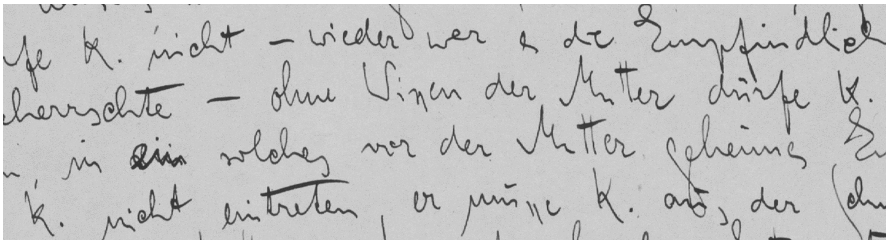 fe K. nicht – wieder war es die Empfindlich
herrschte – ohne Wissen der Mutter dürfe K.
in ein solches vor der Mutter geheimes
K. nicht eintreten, er müsse K. aus der